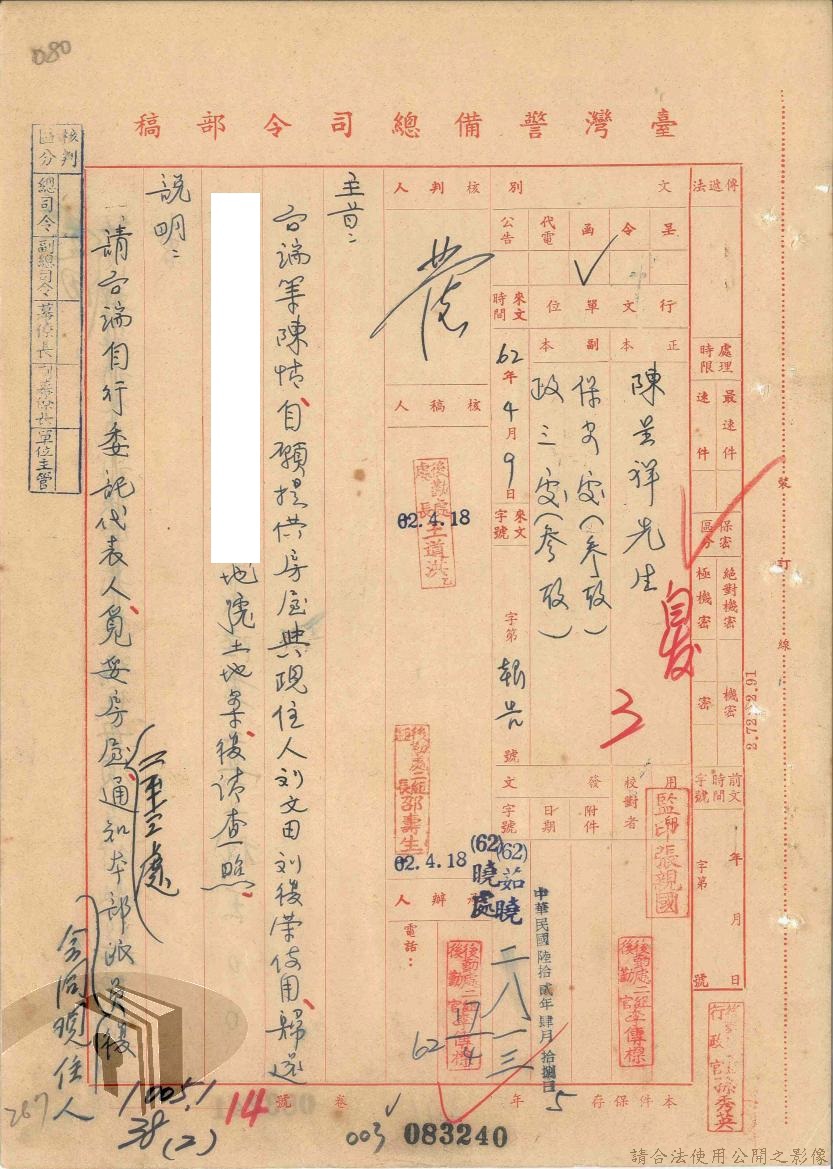 080
臺灣警備總司令部稿
核判區分
總司令
副總司令
幕僚長
副幕僚長
單位主管
傳遞法
處理時限
最速件
速件
保密區分
絕對機密
極機密
機密
密
前文時間字號
年月日
字第號
文別
呈
令
函
代電
公告
行文單位
正本
副本
陳呈祥先生
保安處(參攷)
政三處(參攷)
來文時間
62年4月9日
來文字號
字第報告號
用印
監印張親國
校對者
後勤處二組後勤官李傳標
發文
附件
日期
中華民國陸拾貳年肆月拾捌日
字號
(62)茹曉
(62)曉處
二八一三
核判人
核稿人
後勤處處長王道洪
62.4.18
後勤處二組組長邵壽生
62.4.18
承辦人
後勤處二組後勤官李傳標
電話:
62
17/4
主旨:
台端等陳情自願提供房屋與現住人刘文田刘後荣使用歸還
地號土地案復請查照
說明:
一請台端自行委託代表人覓妥房屋通知本部派員後
會同現住人
本件保存5年
卷
號
14
1005.1
38(2)
267
003
083240
2.72×2.91
裝訂線
行政官孫秀英
請合法使用公開之影像